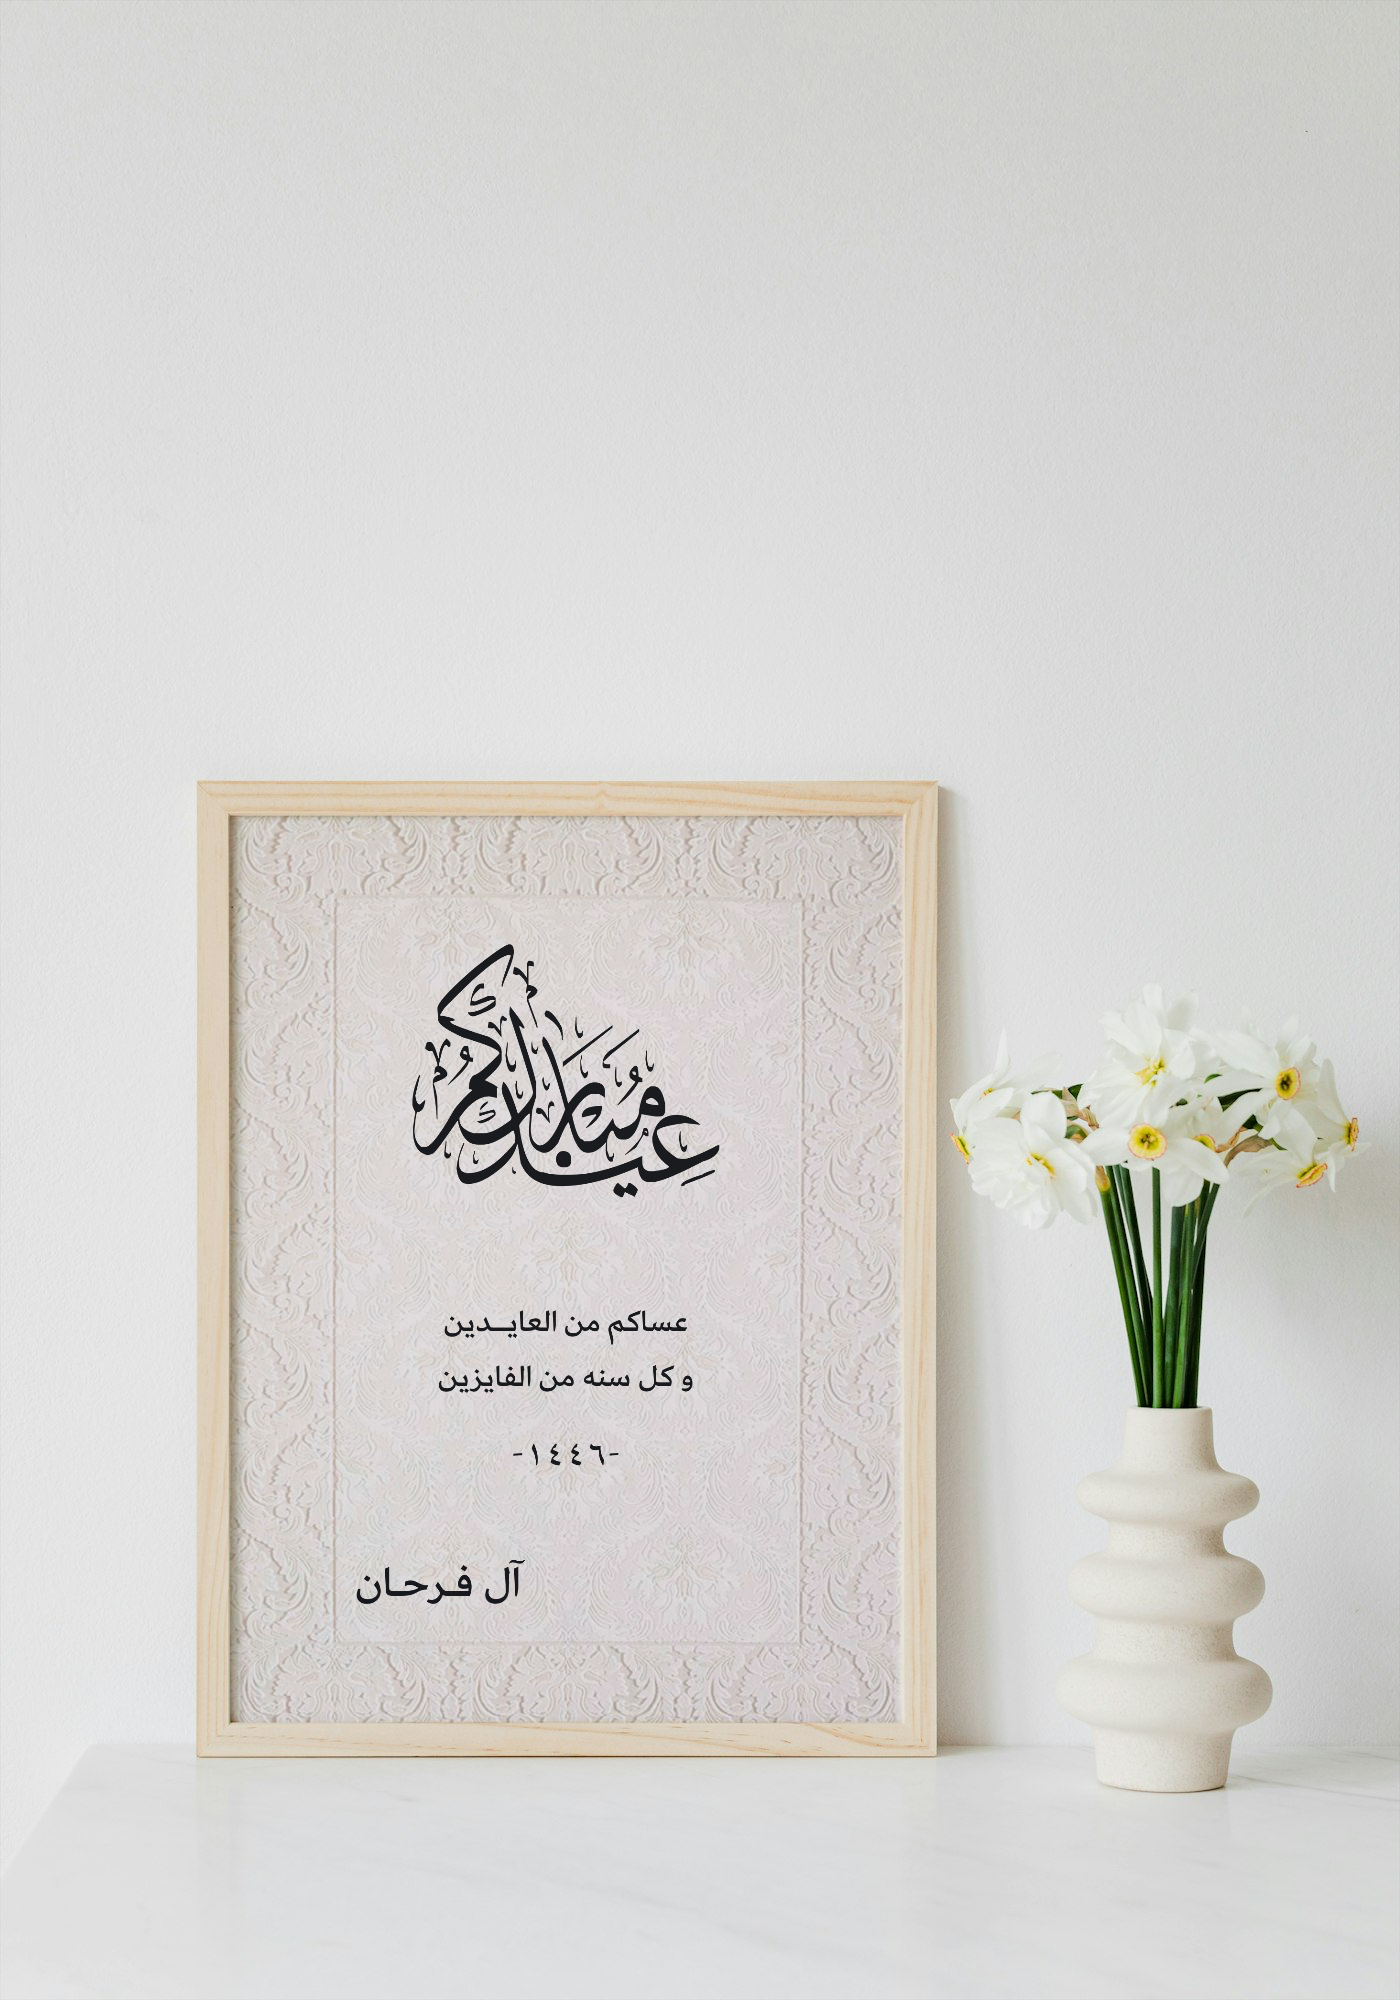 عيدكم مبارك
عساكم من العايــدين
و كل سنه من الفايزين
-١٤٤٦-
آل فـرحـان